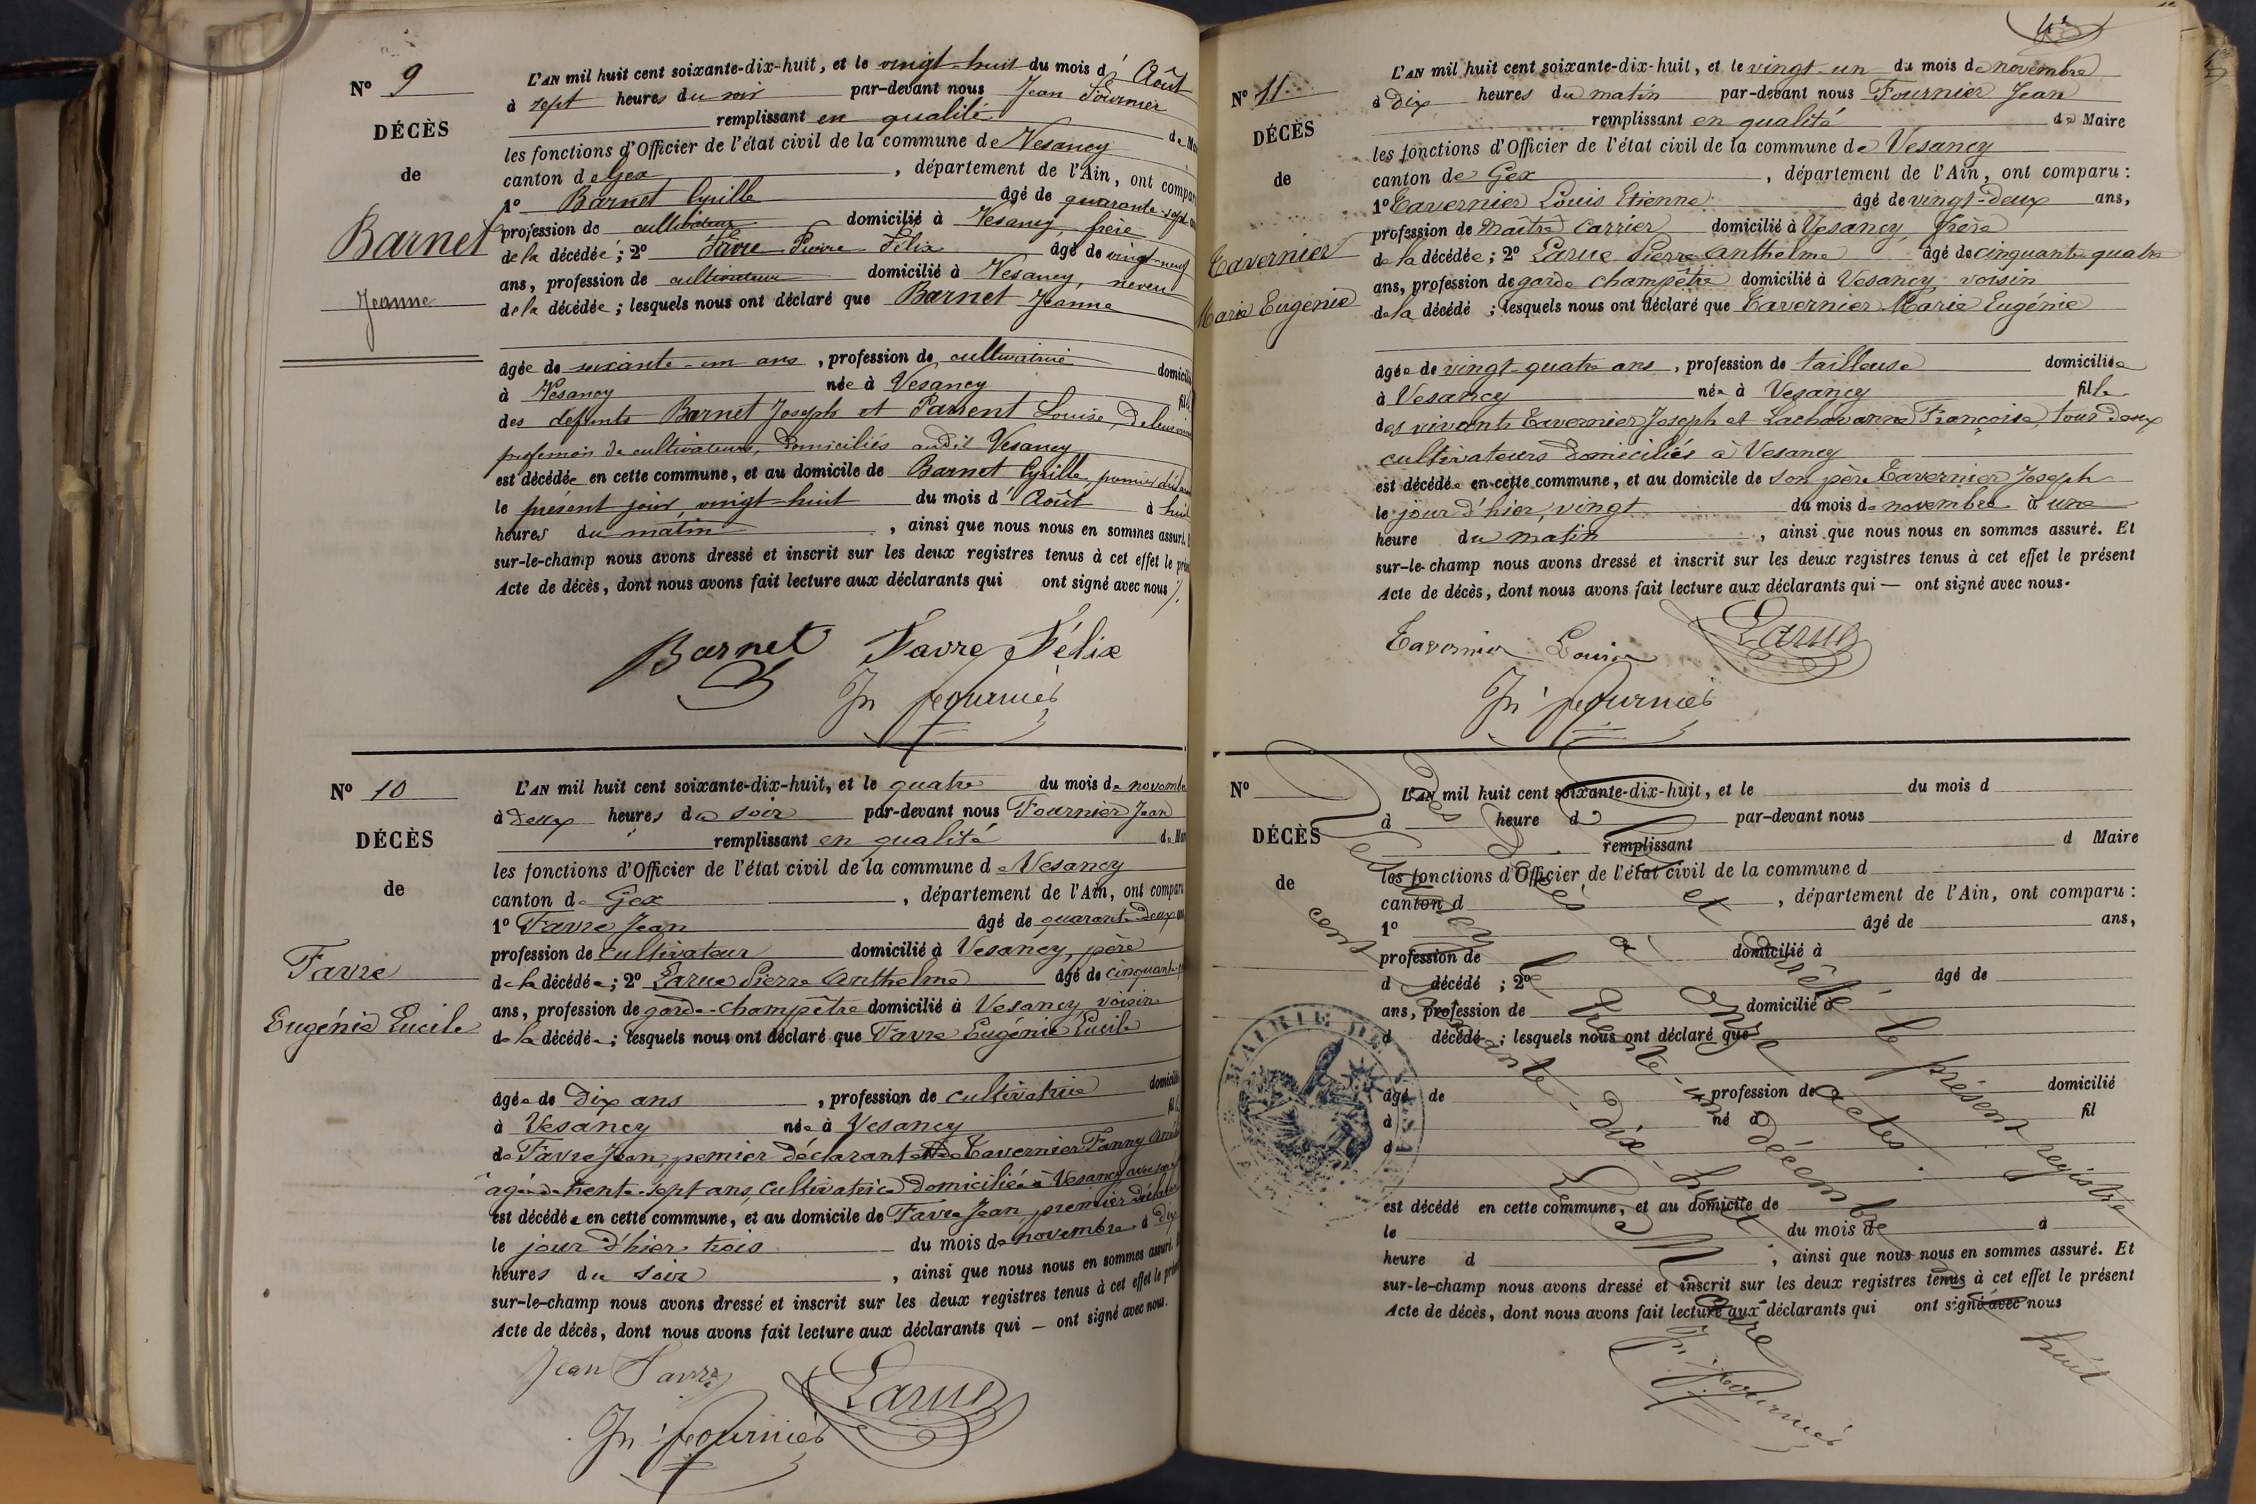 Nº 9
DÉCÈS
de
Barnet
Jeanne
L'AN mil huit cent soixante-dix-huit, et le vingt-huit du mois d' Août
à sept heures du soir par-devant nous Jean Fournier
remplissant en qualité de
les fonctions d'Officier de l'état civil de la commune de Vesancy
canton de Gex, département de l'Ain, ont
1º Barnet Cyrille âgé de quarante-sept
profession de cultivateur domicilié à Vesancy, frère
de la décédée; 2º Favre Pierre Félix âgé de vingt-neuf
ans, profession de cultivateur domicilié à Vesancy, neveu
de la décédée; lesquels nous ont déclaré que Barnet Jeanne
âgée de soixante-un ans, profession de cultivatrice
à Vesancy née à Vesancy
des défunts Barnet Joseph et Panent Louise, De leur
profession de cultivateurs, domiciliés audit Vesancy
est décédée en cette commune, et au domicile de Barnet Cyrille, premier
le présent jour, vingt-huit du mois d' Août à huit
heures du matin, ainsi que nous nous en sommes assuré.
sur-le-champ nous avons dressé et inscrit sur les deux registres tenus à cet effet le
Acte de décès, dont nous avons fait lecture aux déclarants qui ont signé avec nous
Barnet Favre Félix
Jn Fournier
Nº 10
DÉCÈS
de
Favre
Eugénie Lucile
L'AN mil huit cent soixante-dix-huit, et le quatre du mois de
à deux heures du soir par-devant nous Fournier Jean
remplissant en qualité de
les fonctions d'Officier de l'état civil de la commune de Vesancy
canton de Gex, département de l'Ain, ont
1º Favre Jean âgé de quarante deux
profession de cultivateur domicilié à Vesancy, père
de la décédée; 2º Larue Pierre Anthelme âgé de
ans, profession de garde-champêtre domicilié à Vesancy voisin
de la décédée; lesquels nous ont déclaré que Favre Eugénie Lucile
âgée de Dix ans, profession de cultivatrice
à Vesancy née à Vesancy
de Favre Jean, premier déclarant et de Tavernier Fanny
âgée de trente sept ans, cultivatrice domiciliée à Vesancy
est décédée en cette commune, et au domicile de Favre Jean, premier
le jour d'hier trois du mois de novembre à dix
heures du soir, ainsi que nous nous en sommes assuré.
sur-le-champ nous avons dressé et inscrit sur les deux registres tenus à cet effet le
Acte de décès, dont nous avons fait lecture aux déclarants qui — ont signé avec nous.
Jean Favre Larue
Jn Fournier
43
Nº 11
DÉCÈS
de
Tavernier
Marie Eugénie
L'AN mil huit cent soixante-dix-huit, et le vingt-un du mois de novembre
à Dix heures du matin par-devant nous Fournier Jean
remplissant en qualité de Maire
les fonctions d'Officier de l'état civil de la commune de Vesancy
canton de Gex, département de l'Ain, ont comparu:
1º Tavernier Louis Etienne âgé de vingt-deux ans,
profession de Maître Carrier domicilié à Vesancy, frère
de la décédée; 2º Larue Pierre Anthelme âgé de cinquante quatre
ans, profession de garde champêtre domicilié à Vesancy voisin
de la décédé; lesquels nous ont déclaré que Tavernier Marie Eugénie
âgée de vingt quatre ans, profession de tailleuse domiciliée
à Vesancy née à Vesancy fille
des vivants Tavernier Joseph et Lachavanne Françoise, tous deux
cultivateurs domiciliés à Vesancy
est décédée en cette commune, et au domicile de son père Tavernier Joseph
le jour d'hier, vingt du mois de novembre à une
heure du matin, ainsi que nous nous en sommes assuré. Et
sur-le-champ nous avons dressé et inscrit sur les deux registres tenus à cet effet le présent
Acte de décès, dont nous avons fait lecture aux déclarants qui — ont signé avec nous.
Tavernier Louis Larue
Jn Fournier
Nº
DÉCÈS
de
L'AN mil huit cent soixante-dix-huit, et le du mois d
à heure d par-devant nous
remplissant d Maire
les fonctions d'Officier de l'état civil de la commune d
canton d, département de l'Ain, ont comparu:
1º âgé de ans,
profession de domicilié à
d décédé; 2º âgé de
ans, profession de domicilié à
d décédé; lesquels nous ont déclaré que
âgé de profession de domicilié
à né à fil
d
est décédé en cette commune, et au domicile de
le du mois de à
heure d, ainsi que nous nous en sommes assuré. Et
sur-le-champ nous avons dressé et inscrit sur les deux registres tenus à cet effet le présent
Acte de décès, dont nous avons fait lecture aux déclarants qui ont signé avec nous
Clos et arrêté le présent registre
des Décès à onze actes.
Vesancy le trente-un décembre mil huit
cent soixante-dix-huit.
Le Maire
Jn Fournier
MAIRIE DE